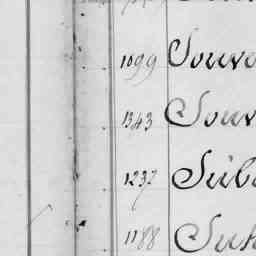 1099 Souvo
1343 Souv
1237 Sub
1188 Suh